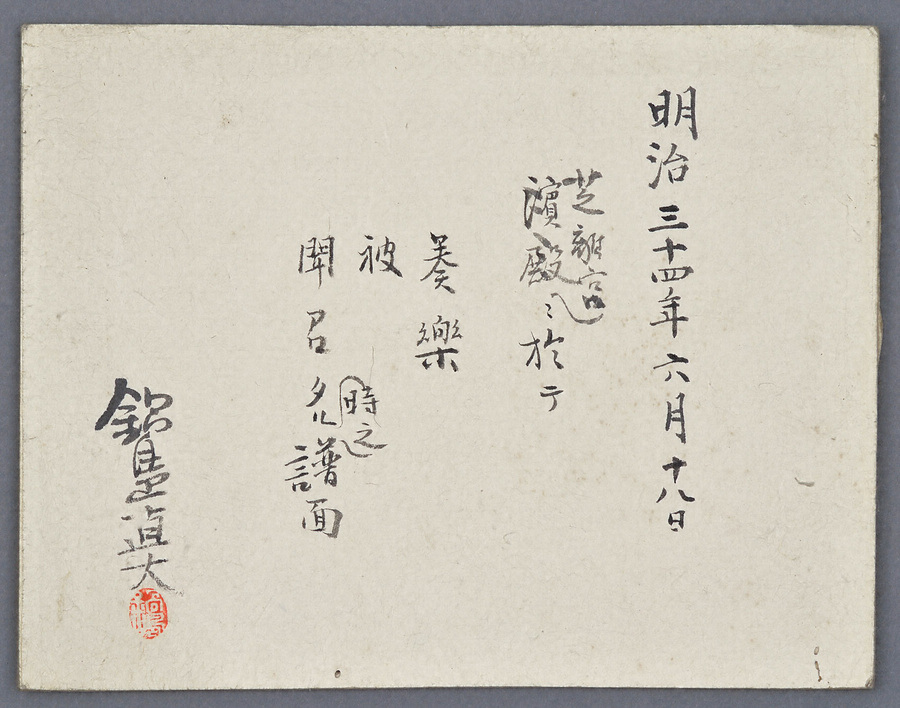 明治三十四年六月十八日
芝離宮
濱殿ミ於テ
奏樂
被
聞召タル譜面
時之
鍋島直大